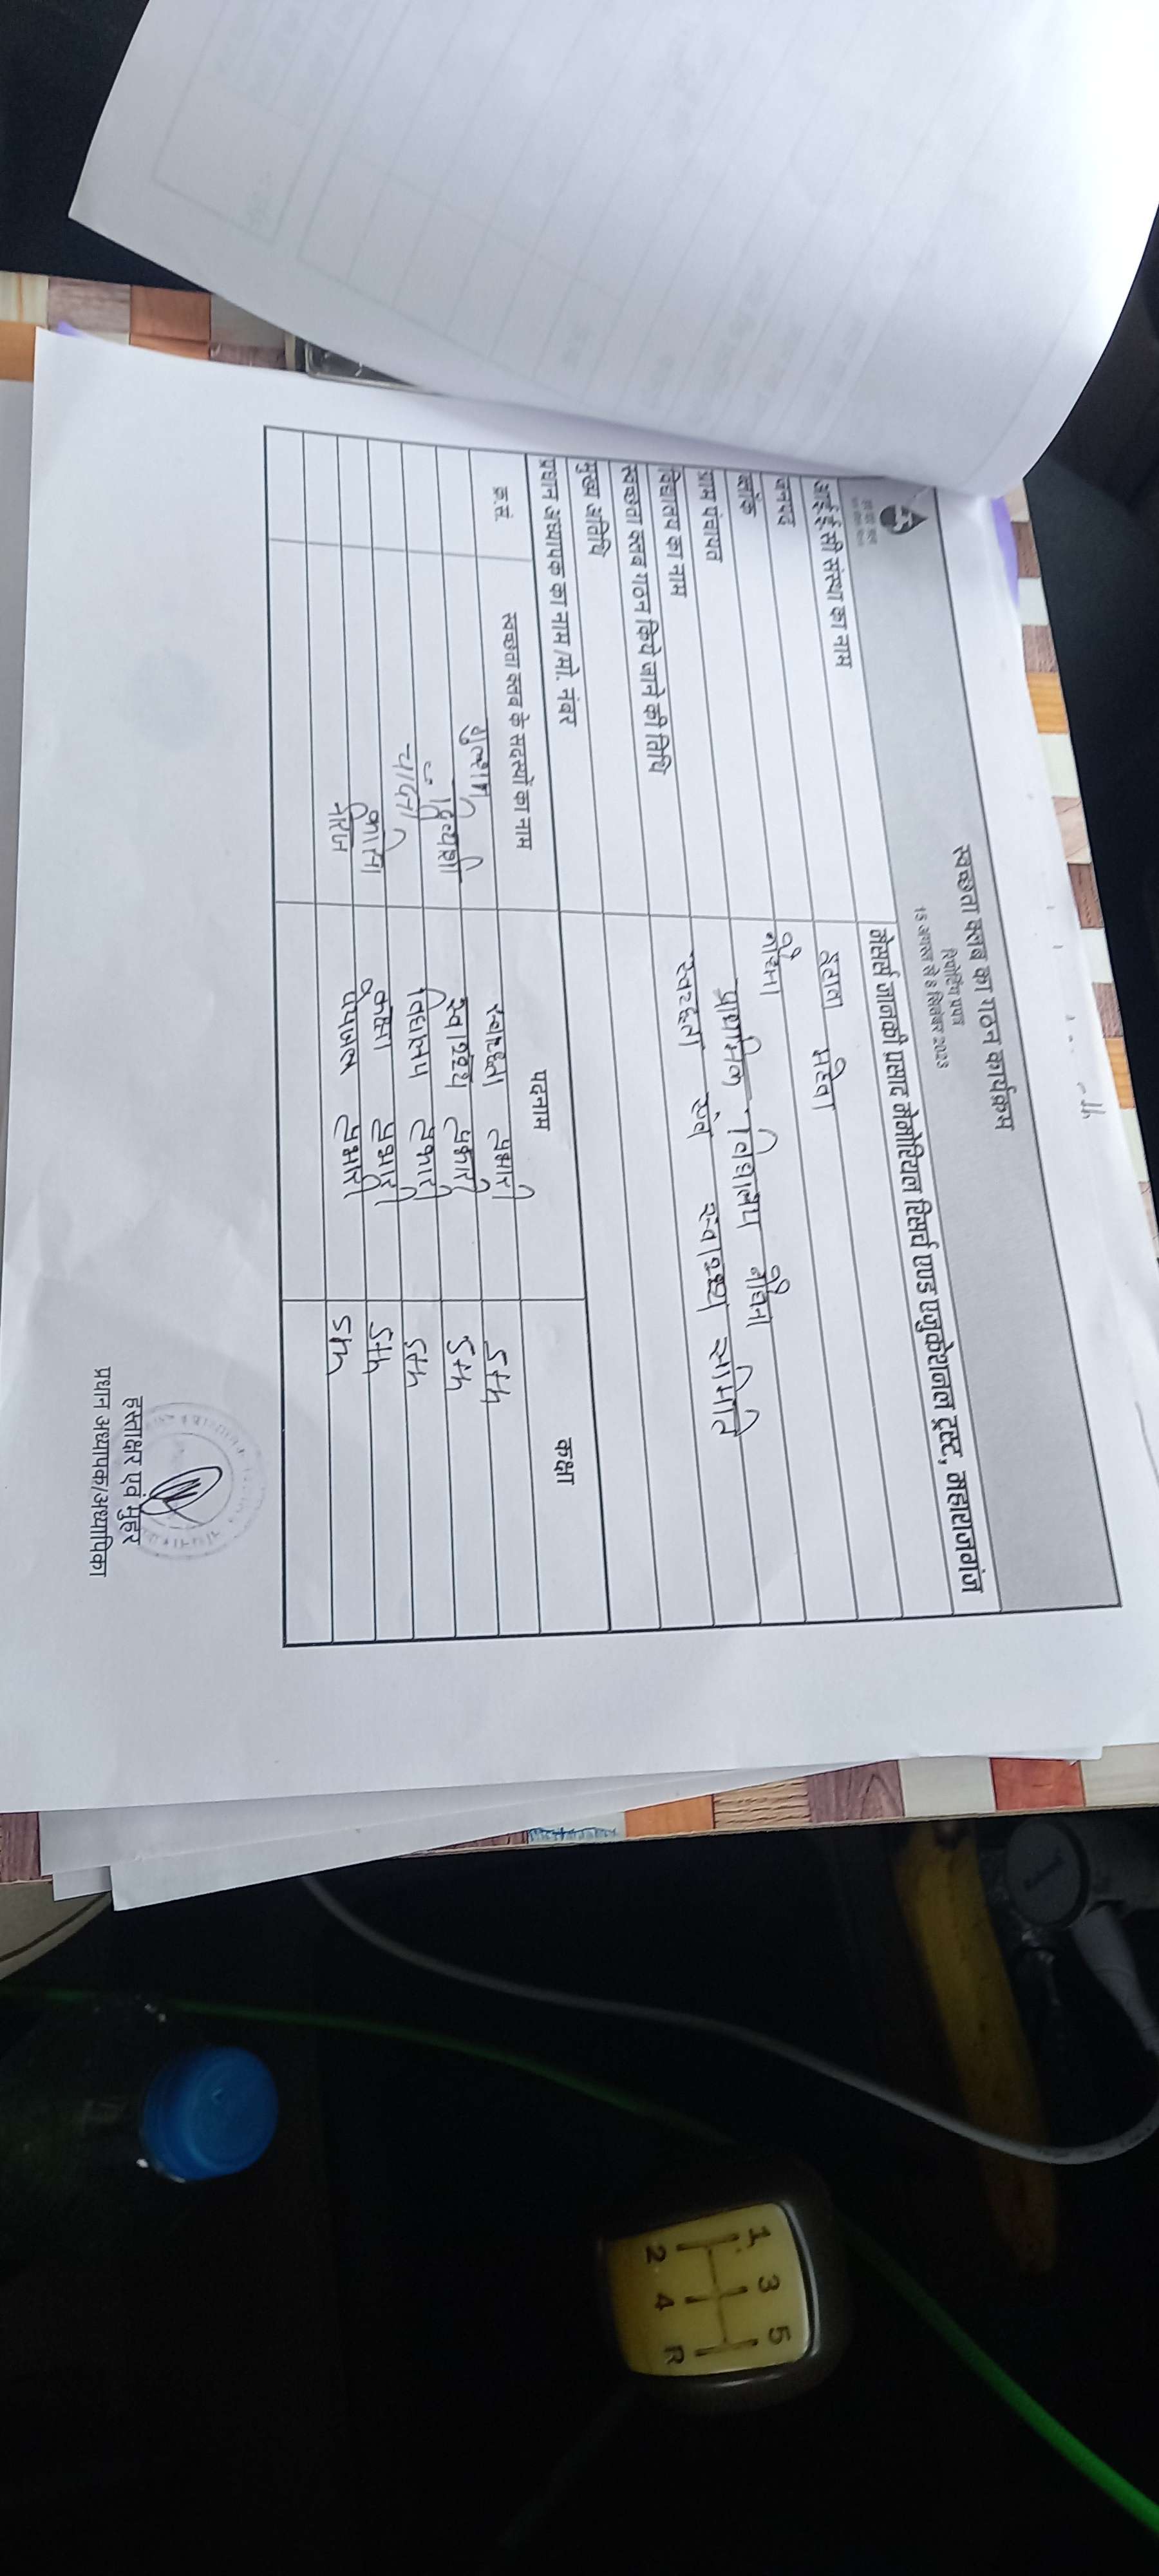 स्वच्छता क्लब का गठन कार्यक्रम
रिपोर्टिंग प्रपत्र
15 अगस्त से 8 सितंबर 2023
आई.ई.सी संस्था का नाम मेसर्स जानकी प्रसाद मेमोरियल रिसर्च एण्ड एजुकेशनल ट्रस्ट, महाराजगंज
जनपद इटावा
ब्लॉक
ग्राम पंचायत
विद्यालय का नाम प्राथमिक विद्यालय
स्वच्छता क्लब गठन किये जाने की तिथि स्वच्छता एंव स्वास्थ्य समिति
मुख्य अतिथि
प्रधान अध्यापक का नाम/मो. नंबर
क्र.सं. स्वच्छता क्लब के सदस्यों का नाम पदनाम कक्षा
गुलशन स्वच्छता प्रभारी 5th
दिव्यांशी स्वास्थ्य प्रभारी 5th
चांदनी विद्यालय प्रभारी 5th
कक्षा प्रभारी 5th
नीरज पेयजल प्रभारी 5th
हस्ताक्षर एवं मुहर
प्रधान अध्यापक/अध्यापिका
1 3 5
2 4 R